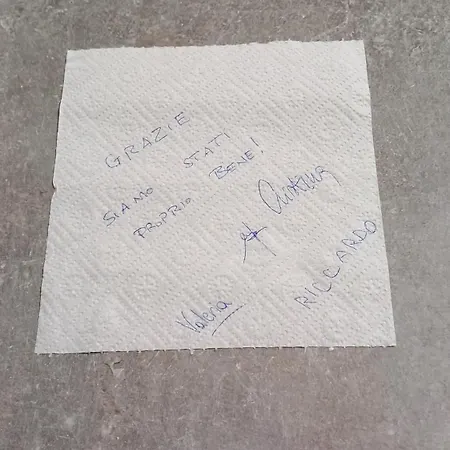 GRAZIE
SIAMO STATI
PROPRIO BENE!
Cristina
Valeria
RICCARDO